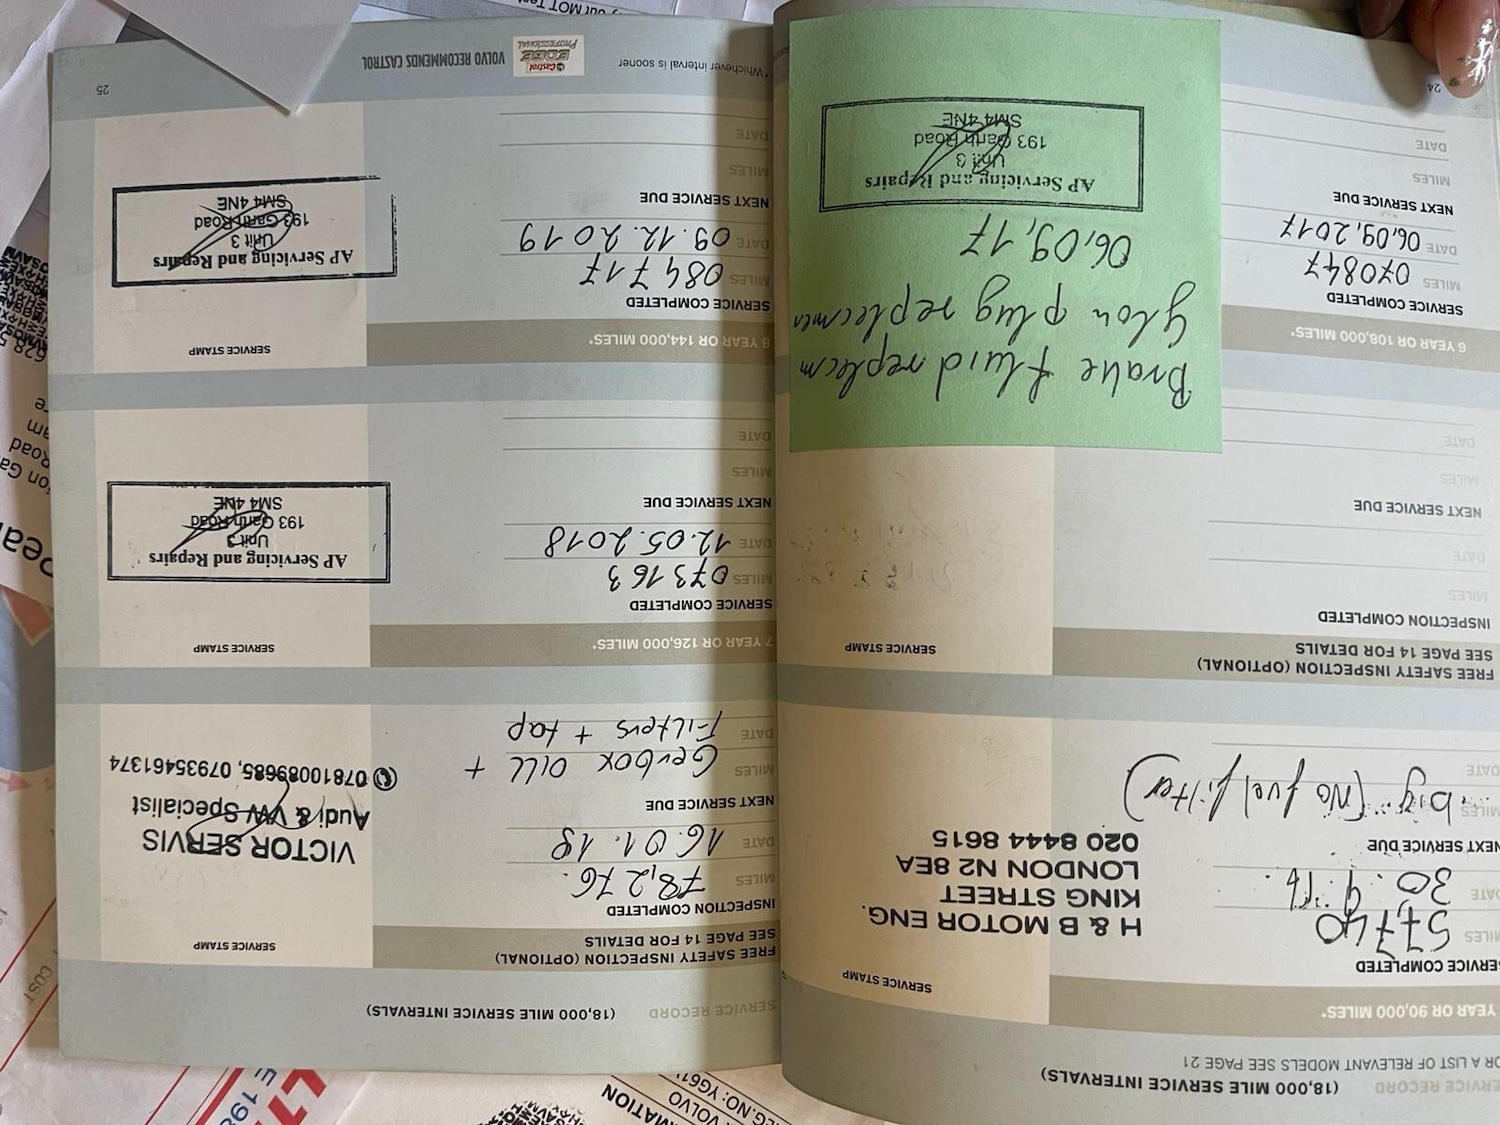 SERVICE RECORD (18,000 MILE SERVICE INTERVALS)
OR A LIST OF RELEVANT MODELS SEE PAGE 21
YEAR OR 90,000 MILES*
SERVICE STAMP
SERVICE COMPLETED
MILES 57740
DATE 30. 9.
NEXT SERVICE DUE
MILES big (No fuel filter)
DATE
H & B MOTOR ENG.
KING STREET
LONDON N2 8EA
020 8444 8615
FREE SAFETY INSPECTION (OPTIONAL)
SEE PAGE 14 FOR DETAILS
SERVICE STAMP
INSPECTION COMPLETED
MILES
DATE
NEXT SERVICE DUE
MILES
DATE
Brake fluid replecm
glow plug replecmen
06,09,17
AP Servicing and Repairs
Unit 3
193 Garth Road
SM4 4NE
6 YEAR OR 108,000 MILES*
SERVICE COMPLETED
MILES 070847
DATE 06,09,2017
NEXT SERVICE DUE
MILES
DATE
24
SERVICE RECORD (18,000 MILE SERVICE INTERVALS)
FREE SAFETY INSPECTION (OPTIONAL)
SEE PAGE 14 FOR DETAILS
SERVICE STAMP
INSPECTION COMPLETED
MILES 78,276.
DATE 16.01.19
NEXT SERVICE DUE
MILES Gerbox OILL +
DATE FILters + tap
VICTOR SERVIS
Audi & VW Specialist
07810089685, 07935461374
7 YEAR OR 126,000 MILES*
SERVICE STAMP
SERVICE COMPLETED
MILES 073163
DATE 12.05.2018
NEXT SERVICE DUE
MILES
DATE
AP Servicing and Repairs
Unit 3
193 Garth Road
SM4 4NE
8 YEAR OR 144,000 MILES*
SERVICE STAMP
SERVICE COMPLETED
MILES 084717
DATE 09.12.2019
NEXT SERVICE DUE
MILES
DATE
AP Servicing and Repairs
Unit 3
193 Garth Road
SM4 4NE
* Whichever interval is sooner
Castrol
EDGE
PROFESSIONAL
VOLVO RECOMMENDS CASTROL
25
VOLVO
COST